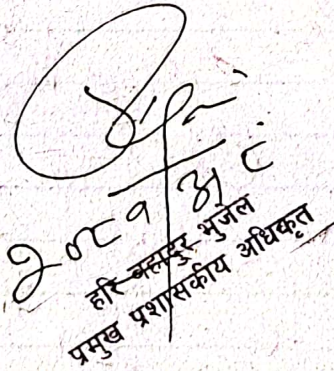 २०८१
हरि बहादुर भुजेल
प्रमुख प्रशासकीय अधिकृत